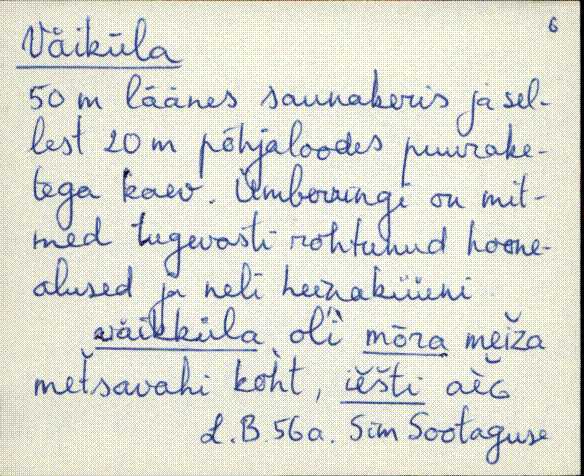 6
Väiküla
50 m läänes saunakeris ja sel-
lest 20 m põhjaloodes puurake-
tega kaev. Ümberringi on mit-
med tugevasti rohtunud hoone-
alused ja neli heinaküüni
väikküla oli mõra meiža
metsavahi koht, iešti aèG
L.B. 56a. Siim Sootaguse